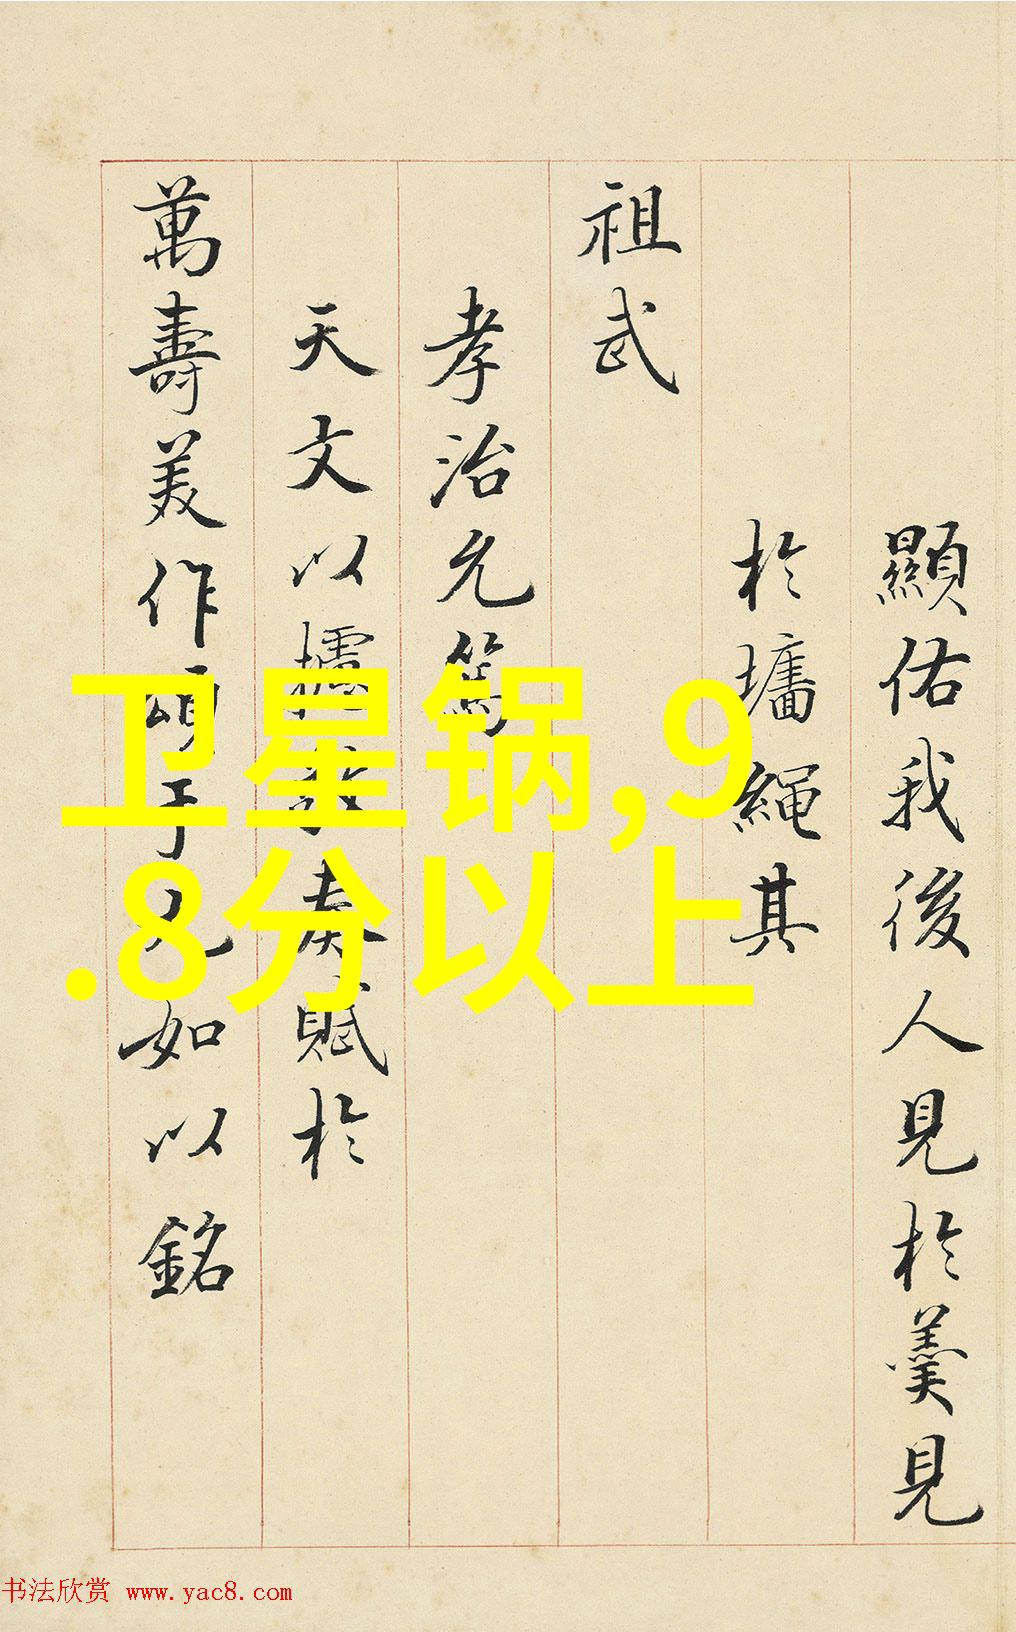 顯佑我後人見於羹見
於墻繩其
祖武
孝治允篤
天文以攄敬奏賦於
萬壽美作頌于兄如以銘
卫星锅,9
.8分以上
书法欣赏 www.yac8.com